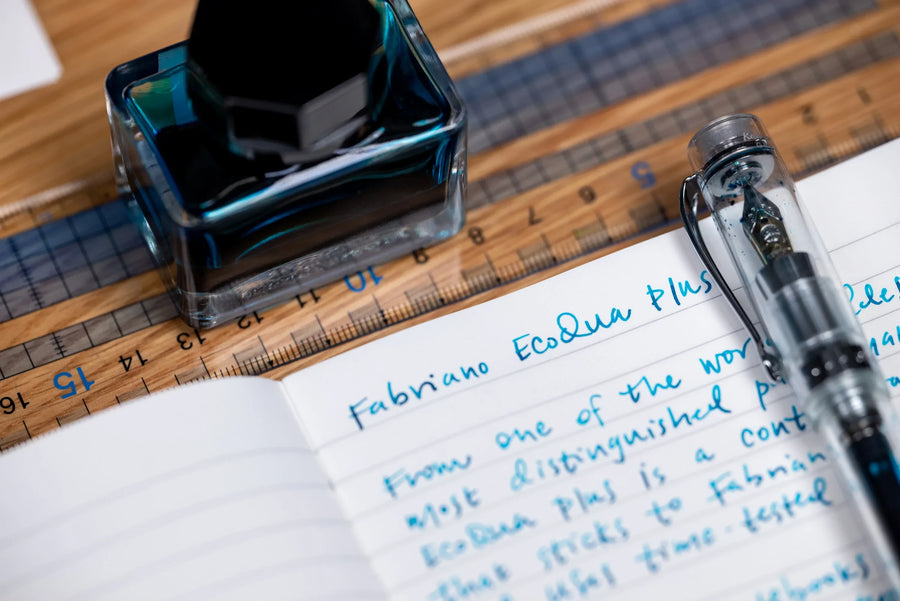 1
2
5
6
7
8
9
10
11
12
13
14
15
16
Fabriano EcoQua plus
From one of the wor
most distinguished p
EcoQua plus is a cont
that sticks to Fabrian
uses time-tested
notebooks